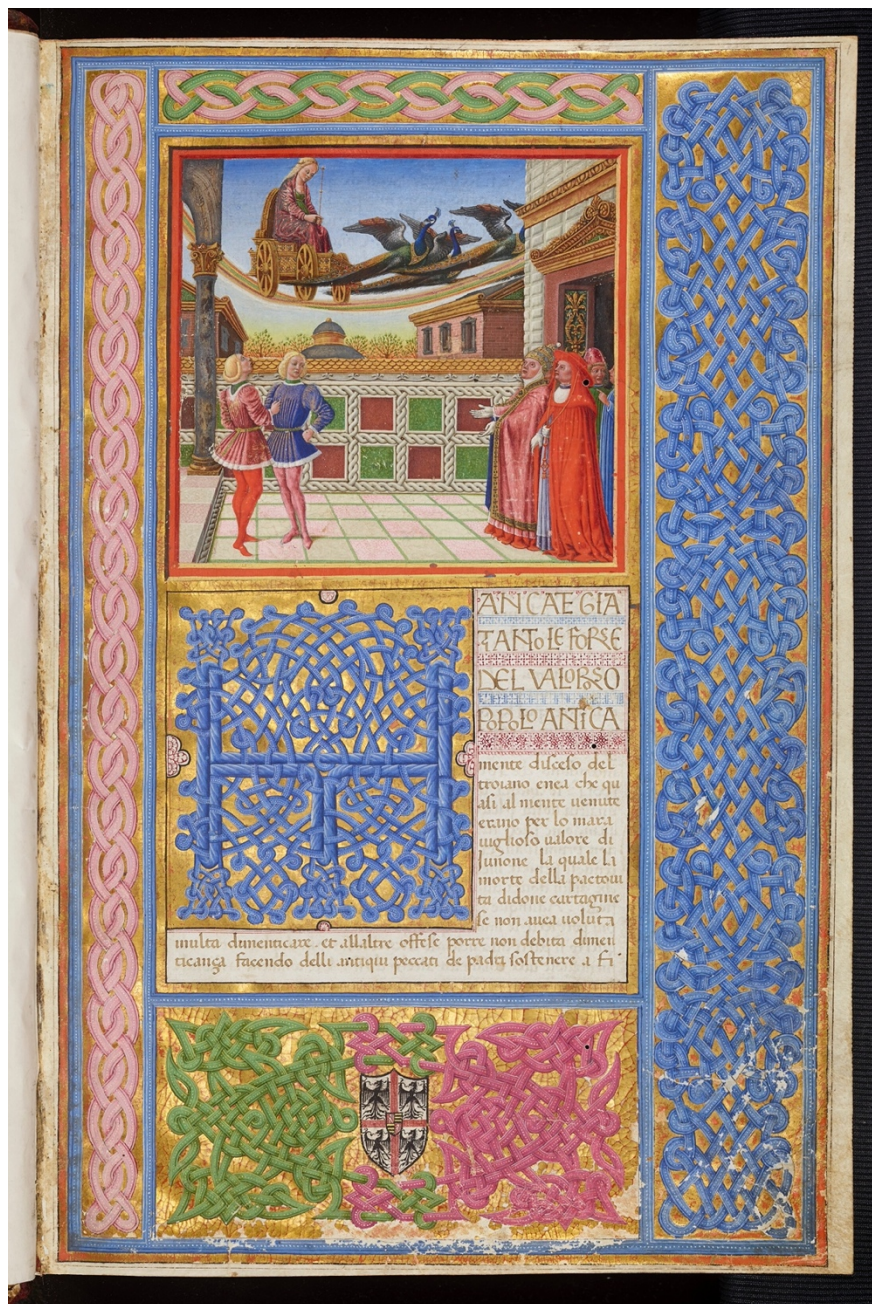 MANCATE GIA
TANTO LE FORSE
DEL VALOROSO
POPOLO ANTICA
mente disceso del
troiano enea che qu
asi al mente uenute
erano per lo mara
uiglioso ualore di
Junone la quale la
morte della pactoui
ta didone cartagine
se non auea uoluta
inulta dimenticare. et allaltre offese porre non debita dimen
ticanza facendo delli antiqui peccati de padri sostenere a fi